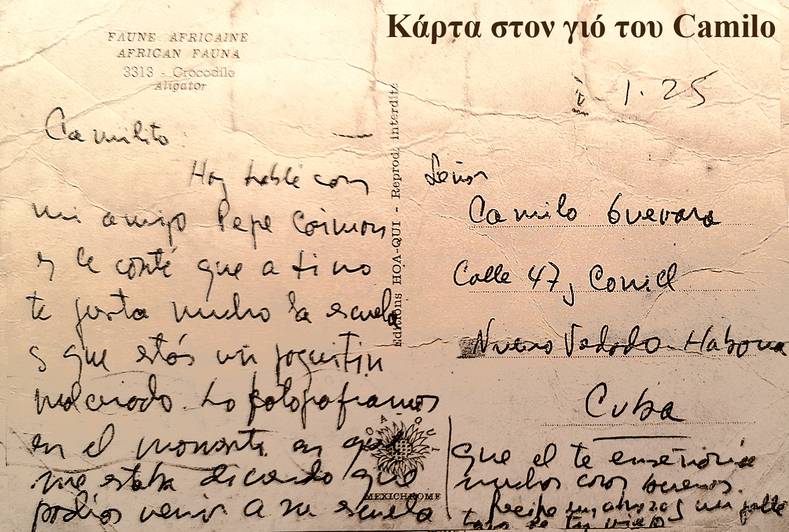 Κάρτα στον γιό του Camilo
FAUNE AFRICAINE
AFRICAN FAUNA
3313 - Crocodile
Aligator
1.25
Camilito
Hoy hablé con
mi amigo Pepe Caiman
y le conté que a ti no
te gusta mucho la escuela
y que estás un poquitin
malcriado. Lo fotografiamos
en el momento en que
me estaba diciendo que
podias venir a su escuela
Editions HOA-QUI - Reprod. interdite
HOA-QUI
MEXICHROME
Señor
Camilo Guevara
Calle 47, Conill
Nuevo Vedado - Habana
Cuba
que el te enseñaria
muchas cosas buenas.
Recibe un abrazo y un
de tu viejo